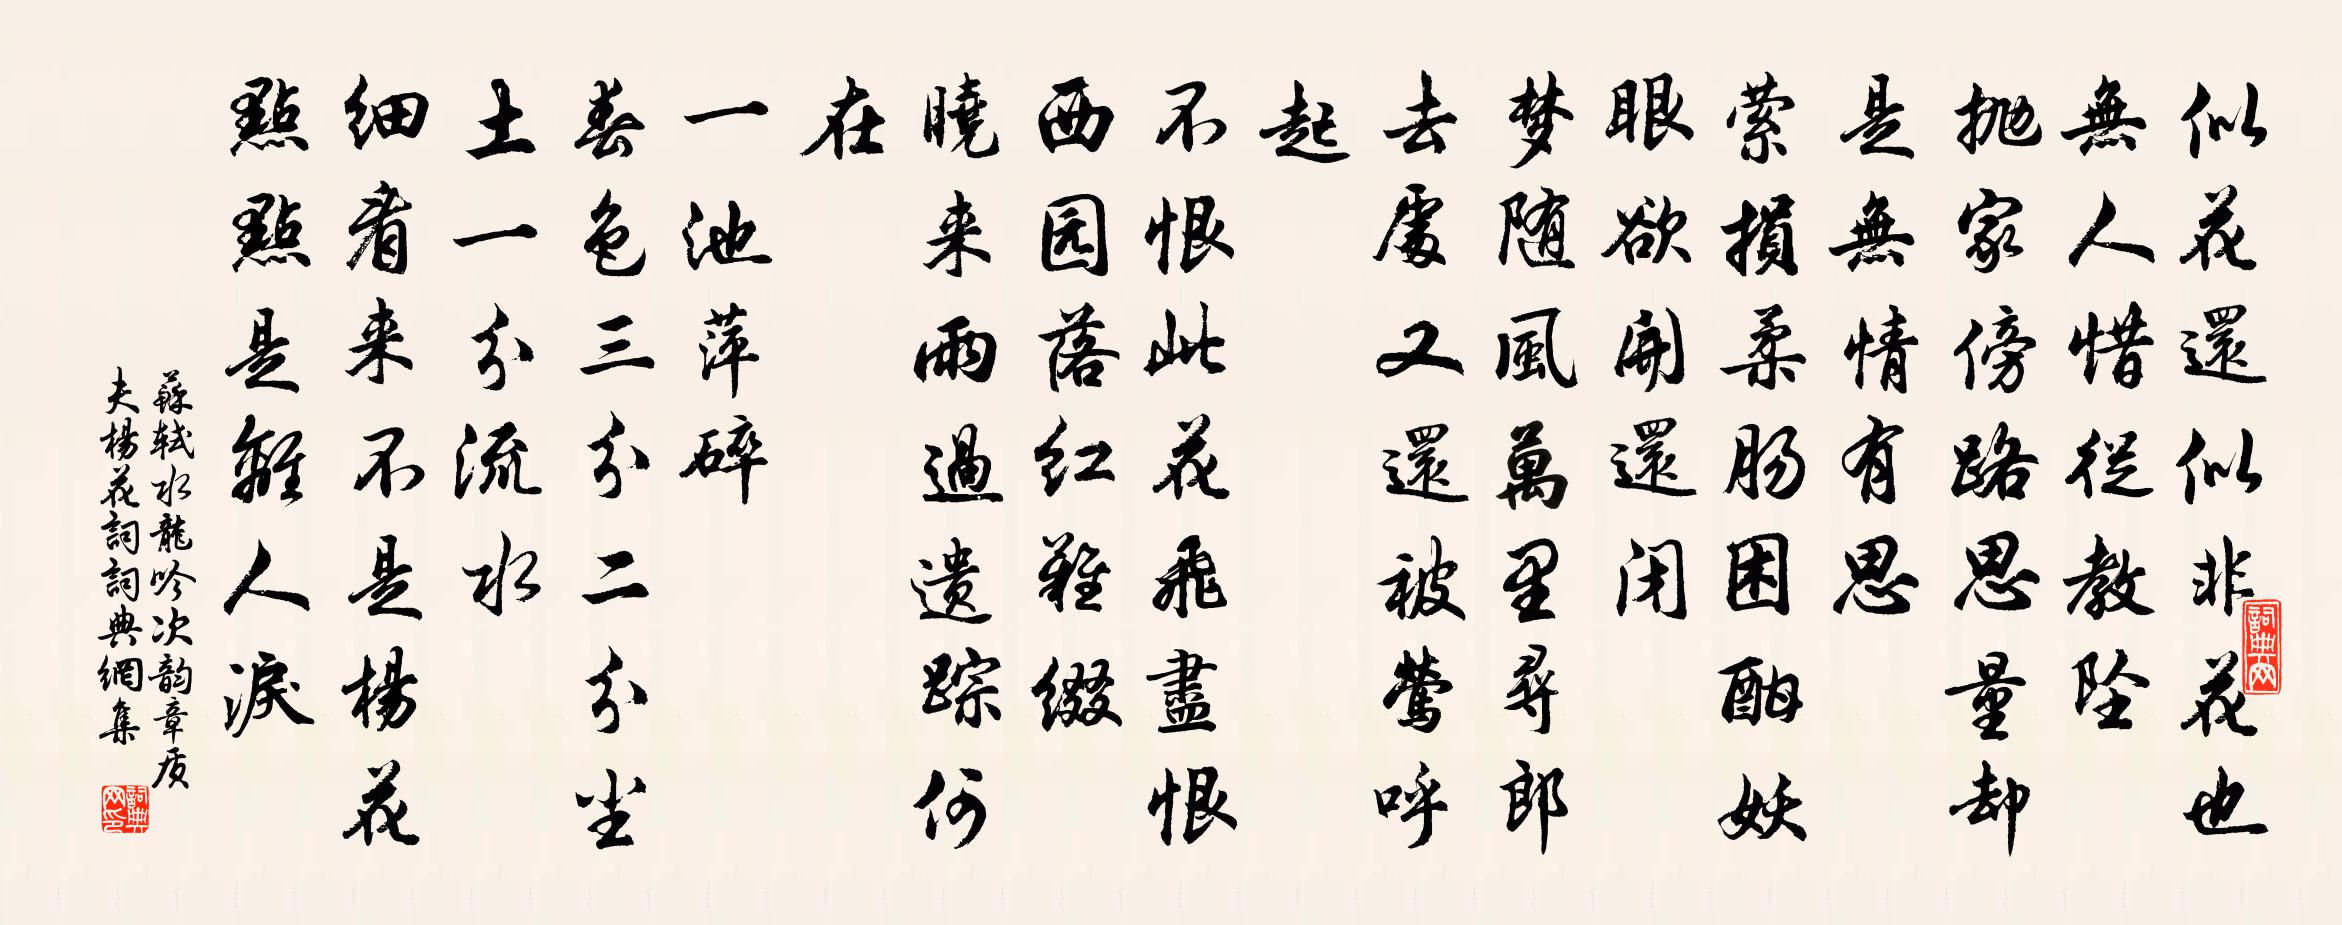 似花還似非花也
無人惜從教墜
抛家傍路思量却
是無情有思
縈損柔肠困酣妖
眼欲開還闭
梦随風萬里尋郎
去處又還被鶯呼
起
不恨此花飛盡恨
西园落红難缀
曉来雨過遗踪何
在
一池萍碎
春色三分二分尘
土一分流水
细看来不是楊花
點點是離人淚
蘇軾水龍吟次韵章质
夫楊花詞詞典網集
詞典网
詞典网印